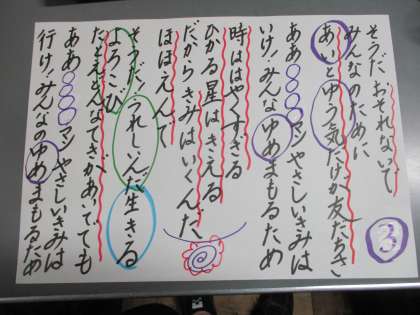 3
そうだ おそれないで
みんなのために
あいとゆう気だけが友だちさ
ああ〇〇〇〇マンやさしいきみは
いけ!みんなのゆめまもるため
時ははやくすぎる
ひかる星はきえる
だからきみはいくんだ
ほほえんで
そうだ!うれしいんだ生きる
よろこび
たとえどんなてきがあいてでも
ああ〇〇〇〇マンやさしいきみは
行け!みんなのゆめまもるため